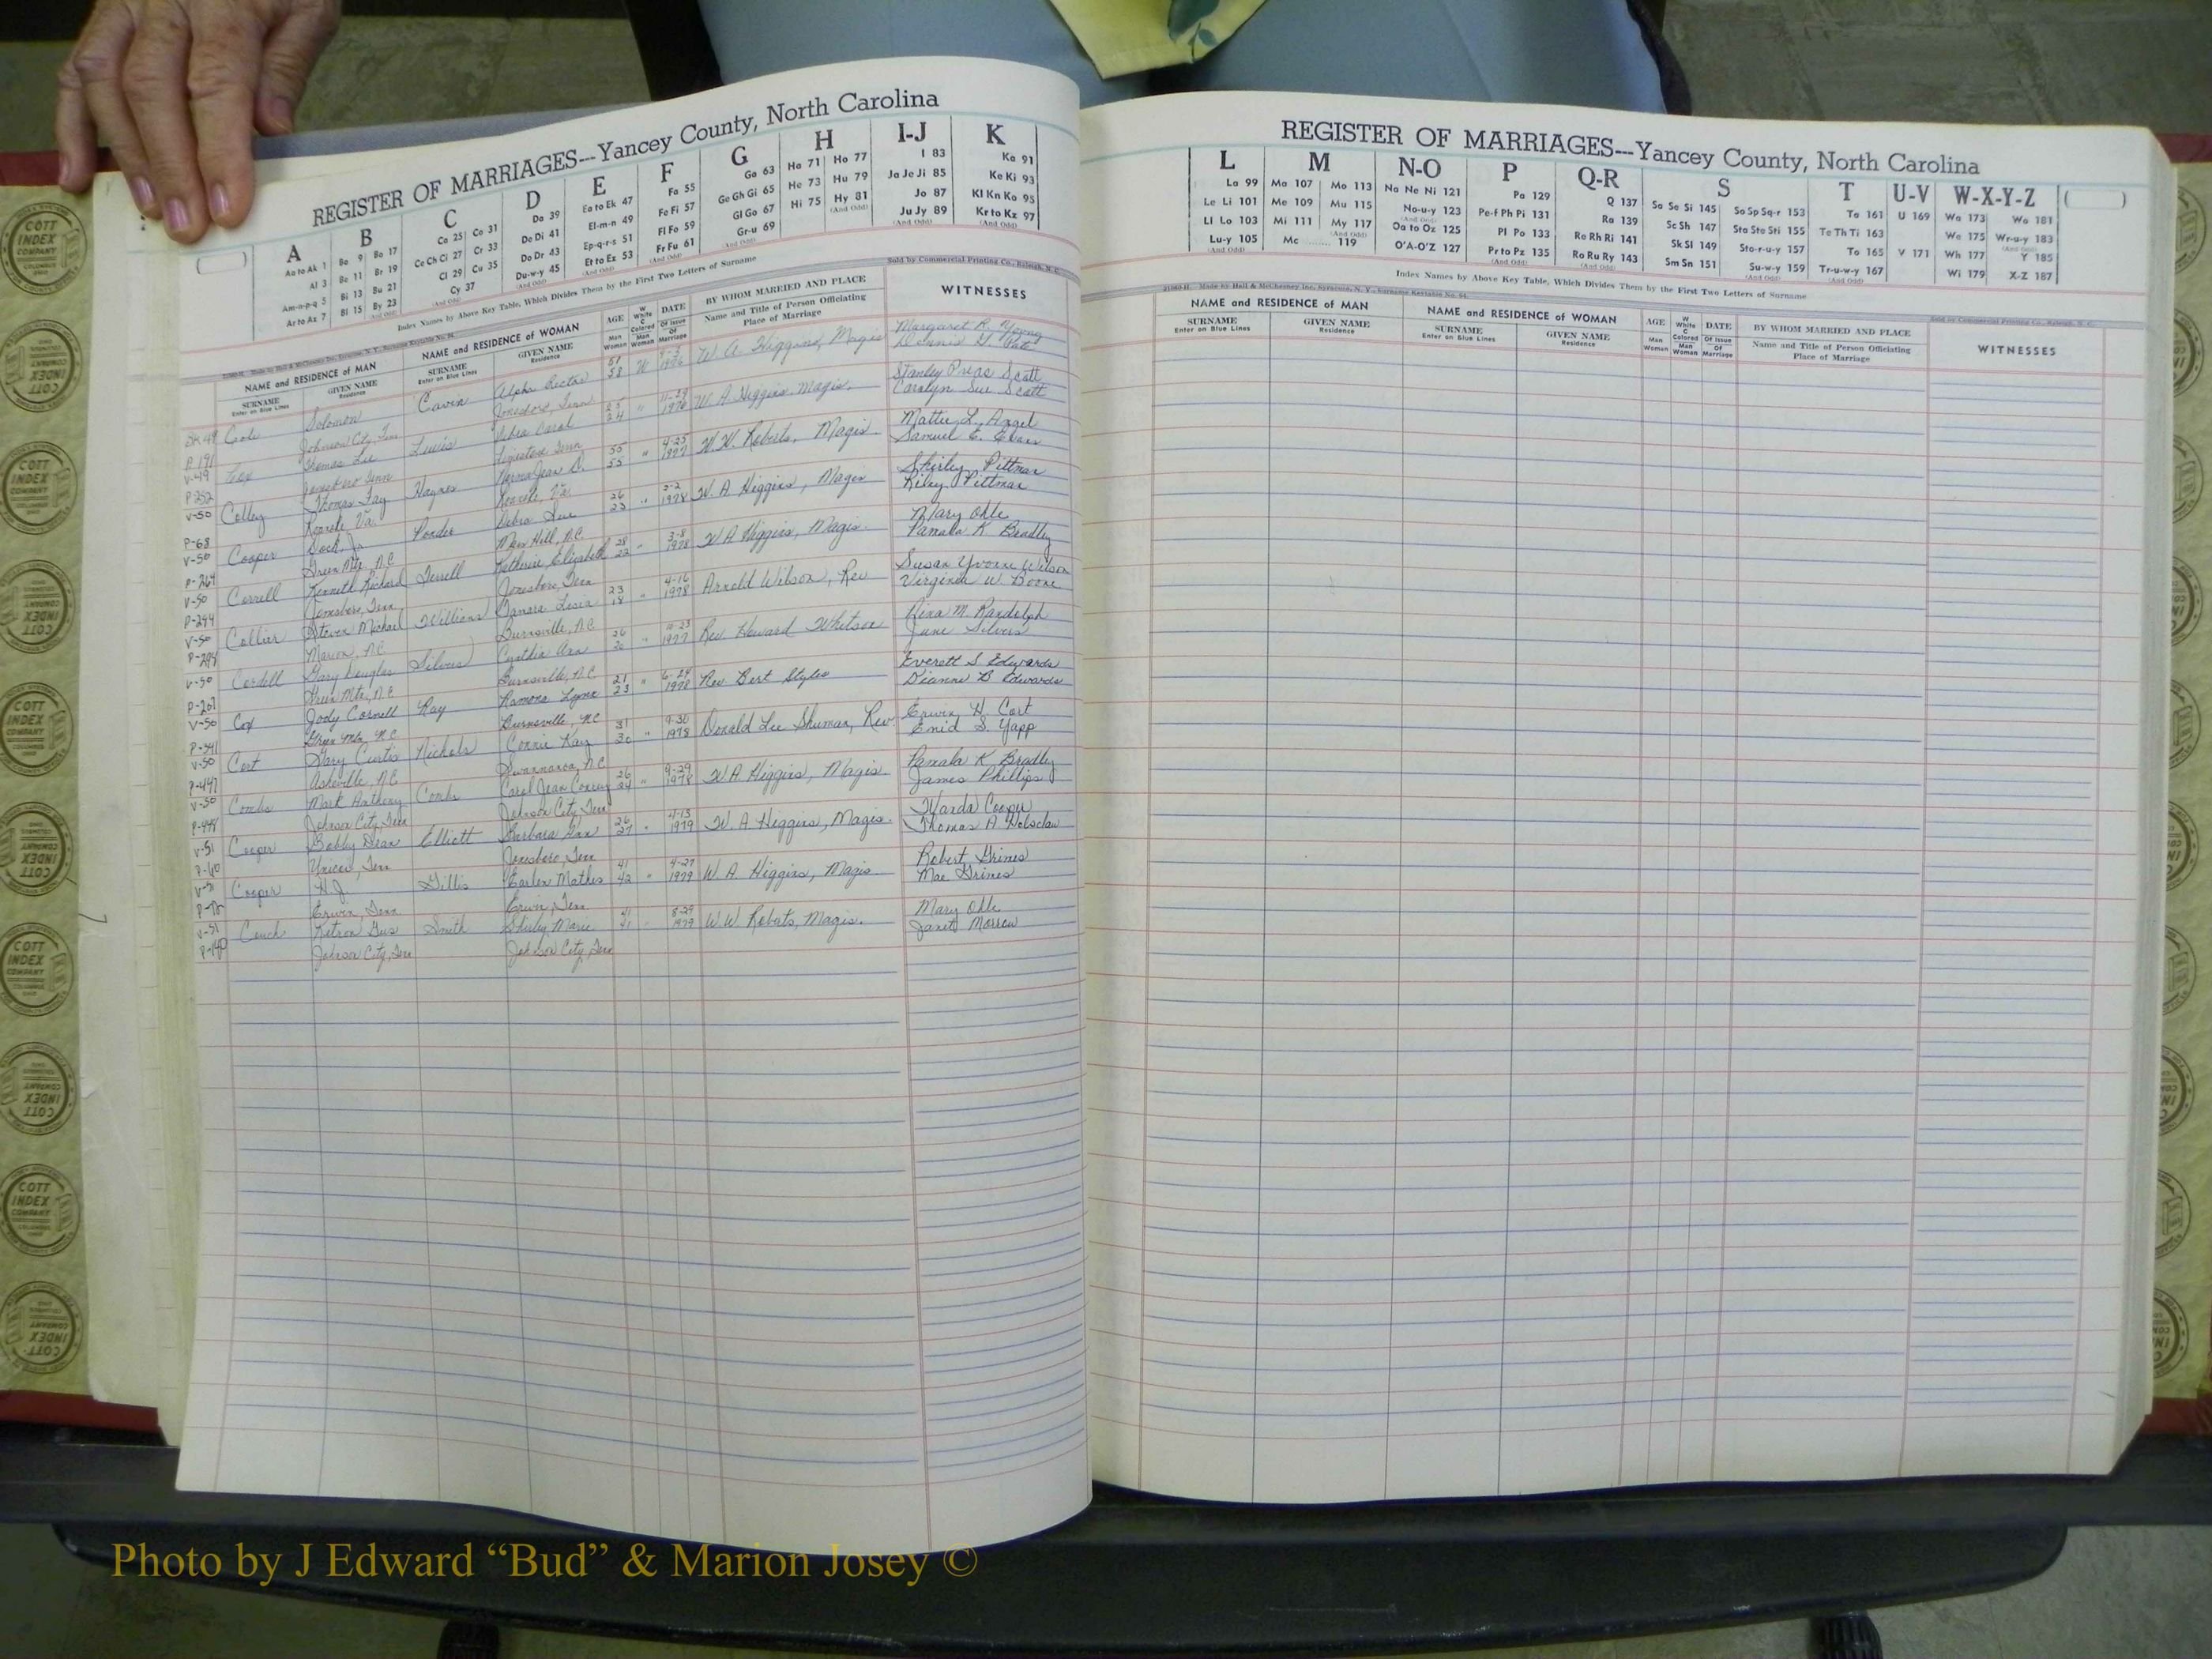 REGISTER OF MARRIAGES---Yancey County, North Carolina
A B C D E F G H I-J K
Aa to Ak 1 Ba 9 Bo 17 Ca 25 Co 31 Da 39 Ea to Ek 47 Fa 55 Ga 63 Ha 71 Ho 77 I 83 Ka 91
Al 3 Be 11 Br 19 Ce Ch Ci 27 Cr 33 De Di 41 El-m-n 49 Fe Fi 57 Ge Gh Gi 65 He 73 Hu 79 Ja Je Ji 85 Ke Ki 93
Am-n-p-q 5 Bi 13 Bu 21 Cl 29 Cu 35 Do Dr 43 Ep-q-r-s 51 Fl Fo 59 Gl Go 67 Hi 75 Hy 81 Jo 87 Kl Kn Ko 95
Ar to Az 7 Bl 15 By 23 Cy 37 Du-w-y 45 Et to Ez 53 Fr Fu 61 Gr-u 69 Ju Jy 89 Kr to Kz 97
Index Names by Above Key Table, Which Divides Them by the First Two Letters of Surname
Sold by Commercial Printing Co., Raleigh, N. C.
NAME and RESIDENCE of MAN NAME and RESIDENCE of WOMAN AGE W White C Colored DATE Of Issue Of Marriage BY WHOM MARRIED AND PLACE WITNESSES
SURNAME Enter on Blue Lines GIVEN NAME Residence SURNAME Enter on Blue Lines GIVEN NAME Residence Man Woman Man Woman Name and Title of Person Officiating Place of Marriage
Cole Solomon Caven Alpha 58 W W. A. Higgins, Magis Margaret R. Young
P 191 Johnson City, Tenn Jonesboro, Tenn
V-49 Thomas Lee Lewis Carol 24 11-29 W. A. Higgins, Magis. Stanley Scott
P 252 Jonesboro Tenn Carolyn Sue Scott
V-50 Colley Thomas Fay Haynes Norma Jean 55 55 " 4-25 1977 W. W. Roberts, Magis Mattie L. Angel
P-68 Roanoke, Va. Roanoke, Va. Samuel E.
V-50 Cooper Jr. Ponder Debra Sue 26 23 " 1978 W. A. Higgins, Magis Shirley Pittman
P-264 Green Mtn, N.C Mars Hill, N.C Riley Pittman
V-50 Correll Kenneth Richard Terrell Katherine Elizabeth 28 22 " 3-8 1978 W A Higgins, Magis. Mary Ohle
P-294 Jonesboro, Tenn Jonesboro, Tenn Pamala K Bradley
V-50 Collier Steven Michael Williams Lesia 23 18 " 4-16 1978 Arnold Wilson, Rev Susan Yvonne Wilson
P-298 Marion, N.C Burnsville, N.C Virginia W. Boone
V-50 Cordell Gary Douglas Silvers Cynthia Ann 26 " 1977 Rev Howard Whitson Nina M. Randolph
P-207 Green Mtn, N.C Burnsville, N.C June Silvers
V-50 Cox Jody Cornell Ray Ramona Lynne 21 23 " 6-24 1978 Rev Bert Styles Everett S Edwards
P-341 Green Mtn, N.C Burnsville, NC Dianne B Edwards
V-50 Cort Gary Curtis Nichols Connie Kay 31 30 " 9-30 1978 Donald Lee Shuman, Rev Erwin H. Cort
P-447 Asheville, N.C Swannanoa, N.C Enid S. Yapp
V-50 Combs Mark Anthony Combs Carol Jean 26 24 " 1978 W A Higgins, Magis. Pamala K Bradley
P-448 Johnson City, Tenn Johnson City, Tenn James Phillips
V-51 Cooper Bobby Dean Elliott Barbara Ann 26 27 " 4-13 1979 W. A Higgins, Magis. Wanda Cooper
P-60 Unicoi, Tenn Jonesboro, Tenn Thomas A. Holsclaw
V-51 Cooper H J Gillis Earlen Mathes 41 42 " 4-27 1979 W. A. Higgins, Magis Robert Grimes
Erwin, Tenn Erwin, Tenn Mae Grimes
V-51 Couch Gus Smith Shirley Marie 41 8-29 1979 W W Roberts, Magis. Mary Ohle
P-140 Johnson City, Tenn Johnson City, Tenn Janet Morrow
REGISTER OF MARRIAGES---Yancey County, North Carolina
L M N-O P Q-R S T U-V W-X-Y-Z
La 99 Ma 107 Mo 113 Na Ne Ni 121 Pa 129 Q 137 Sa Se Si 145 So Sp Sq-r 153 Ta 161 U 169 Wa 173 Wo 181
Le Li 101 Me 109 Mu 115 No-u-y 123 Pe-f Ph Pi 131 Ra 139 Sc Sh 147 Sta Ste Sti 155 Te Th Ti 163 We 175 Wr-u-y 183
Ll Lo 103 Mi 111 My 117 Oa to Oz 125 Pl Po 133 Re Rh Ri 141 Sk Sl 149 Sto-r-u-y 157 To 165 V 171 Wh 177 Y 185
Lu-y 105 Mc 119 O'A-O'Z 127 Pr to Pz 135 Ro Ru Ry 143 Sm Sn 151 Su-w-y 159 Tr-u-w-y 167 Wi 179 X-Z 187
Index Names by Above Key Table, Which Divides Them by the First Two Letters of Surname
NAME and RESIDENCE of MAN NAME and RESIDENCE of WOMAN AGE W White C Colored DATE Of Issue Of Marriage BY WHOM MARRIED AND PLACE WITNESSES
SURNAME Enter on Blue Lines GIVEN NAME Residence SURNAME Enter on Blue Lines GIVEN NAME Residence Man Woman Man Woman Name and Title of Person Officiating Place of Marriage
COTT INDEX COMPANY
Photo by J Edward “Bud” & Marion Josey ©